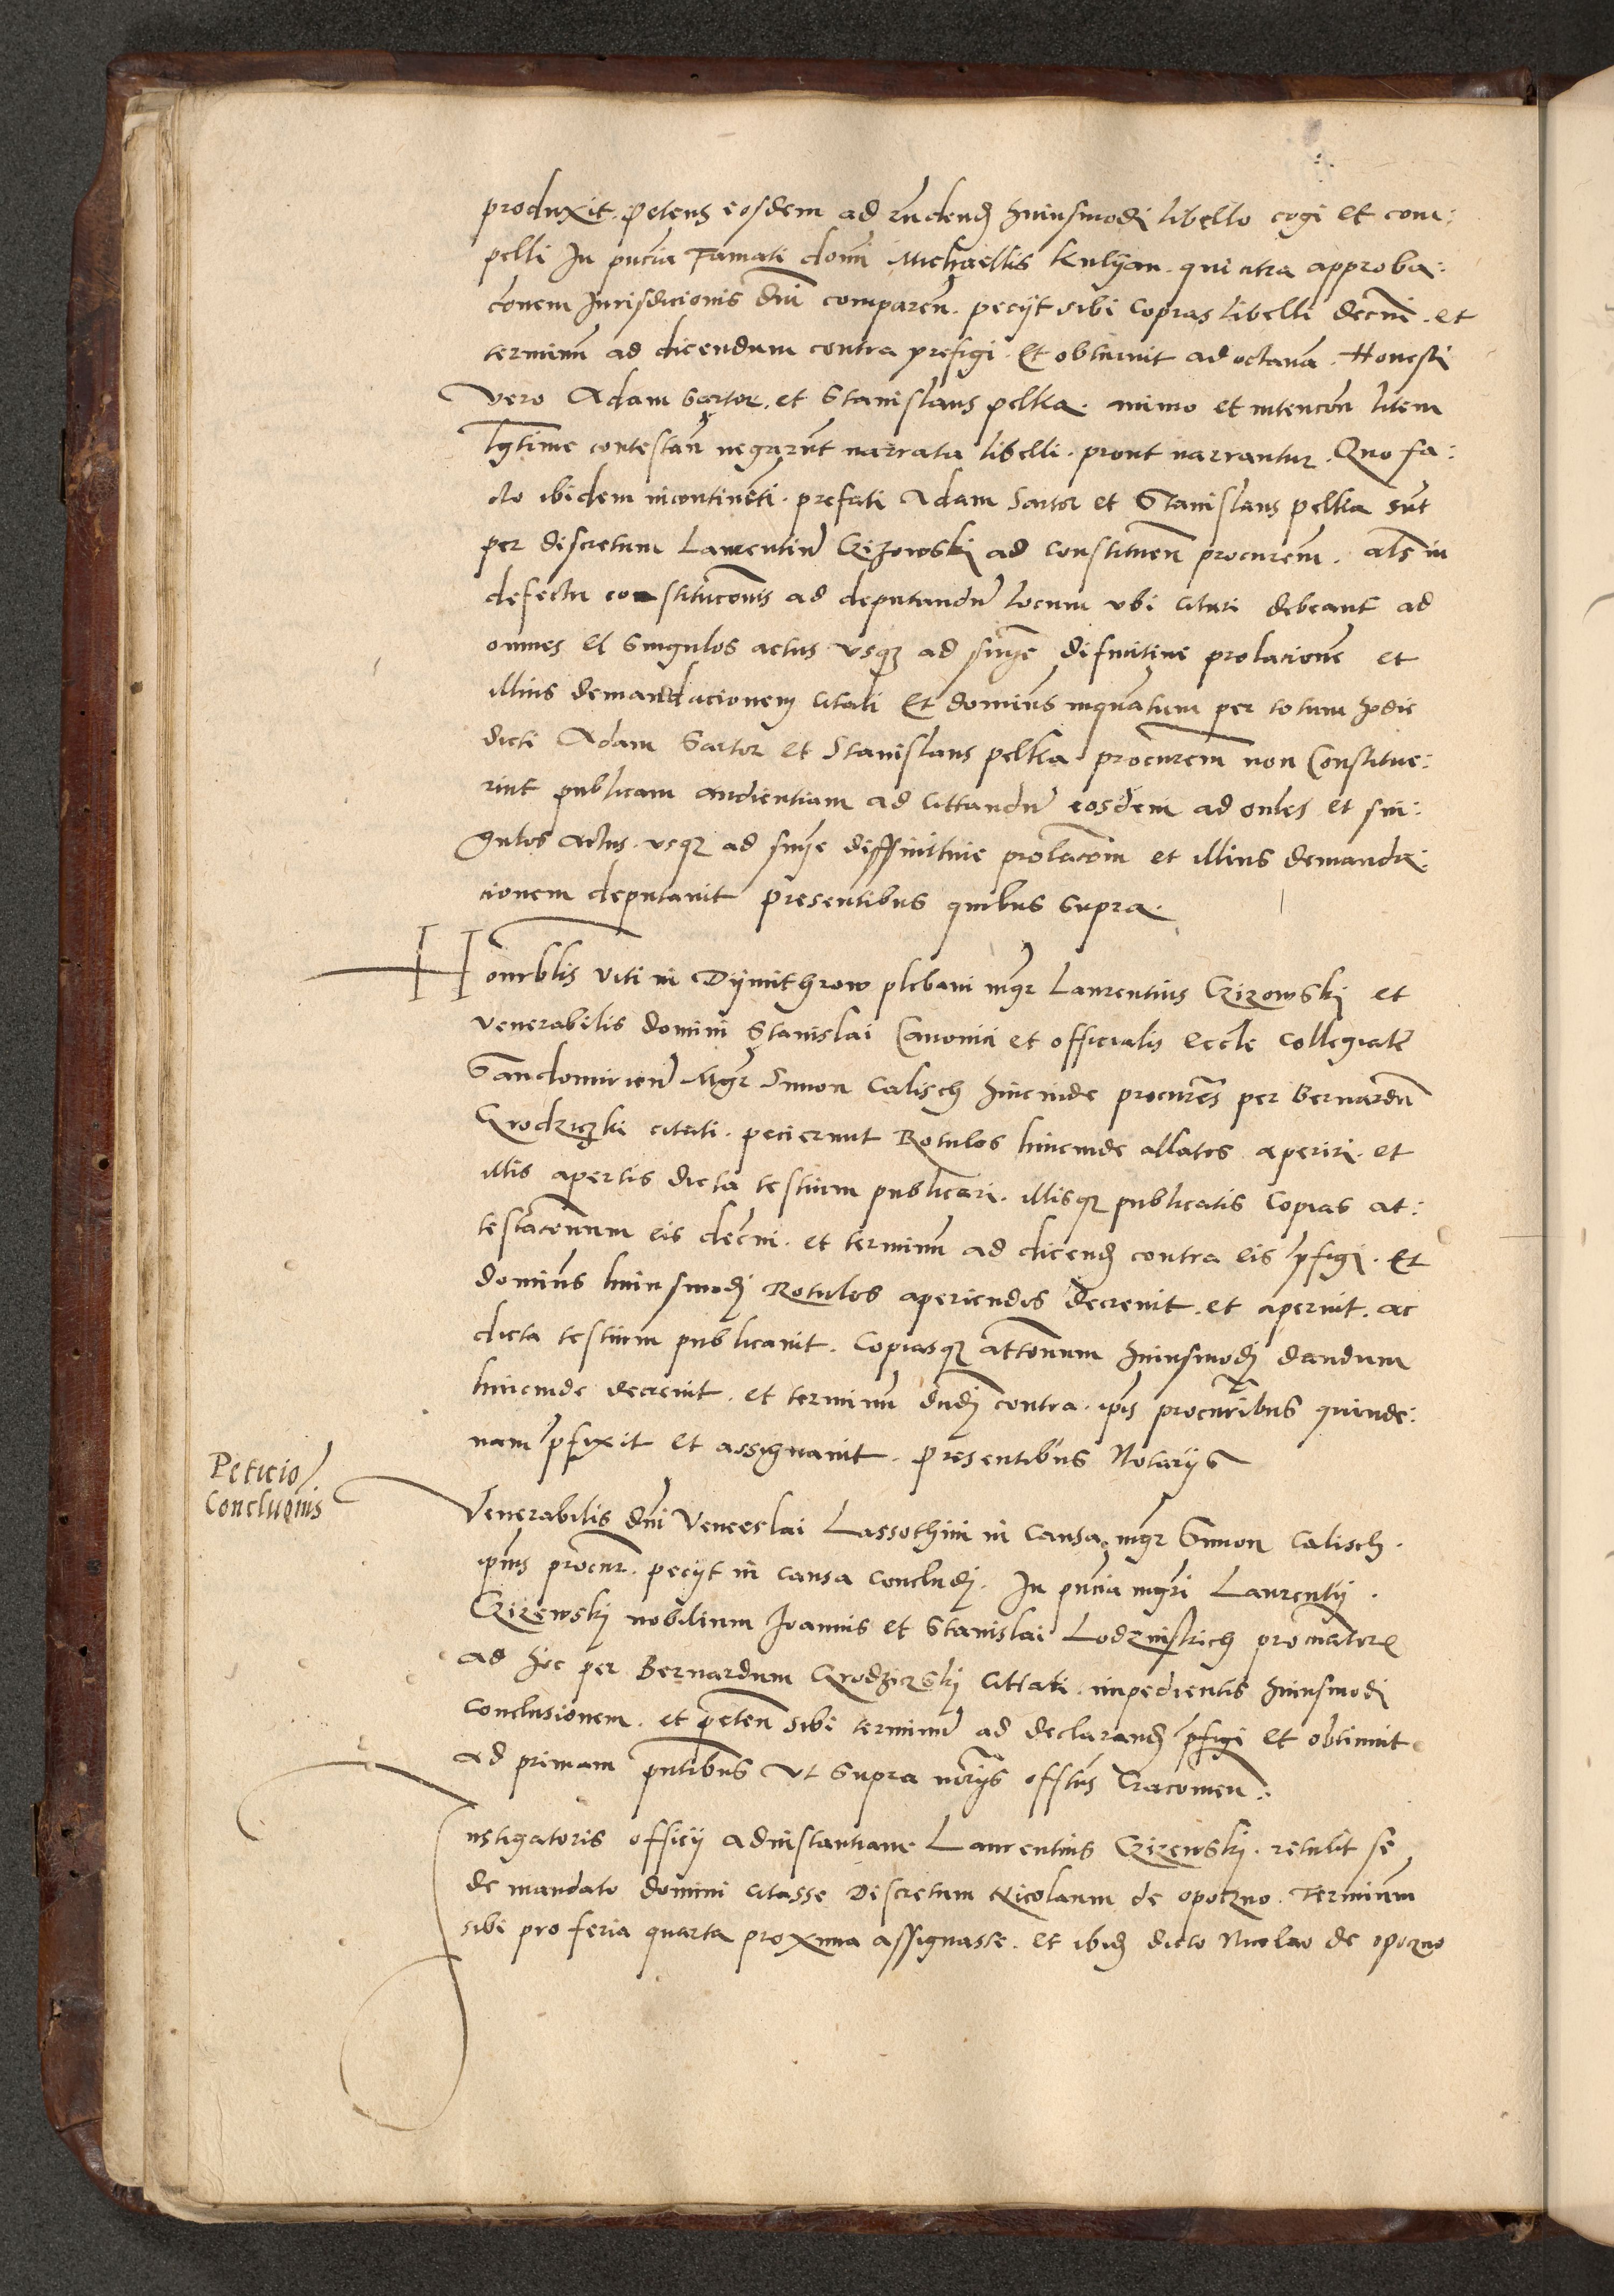 produxit. petens eosdem ad rñdend huiusmodi libello cogi et com:
pelli In pñcia Famati domi Michaellis Kulyan. qui citra approba:
cõnem Jurisdicionis dñi comparen. pecijt sibi copias libelli decñi. et
terminũ ad dicendum contra prefigi. Et obtinuit ad octauã. Honesti
vero Adam Sartor. et Stanislaus pelka. animo et intencõn litem
lgtime contestañ negarũt narrata libelli. prout narrantur. Quo fa:
cto ibidem incontinẽti. prefati Adam Sartor et Stanislaus pelka sũt
per discretum Laurentiũ Czizowski ad constituen procurem. als in
defectu constitucõnis ad deputandũ locum vbi citari debeant ad
omnes et singulos actus vsq ad sñie difinitiue prolacionẽ et
illius demandacionem citati Et dominus inquantum per totum hodie
dicti Adam Sartor et Stanislaus pelka procurem non Constitue:
rint publicam audientiam ad cittandũ eosdem ad om̃es et sin:
gulos actus. vsq ad sñie diffinitiue prolacõm et illius demanda:
cionem deputauit presentibus quibus supra.
Honorblis Viti in Dymithrow plebani mgr Laurentius Czizowski et
venerabilis domini Stanislai Canonici et officialis eccle Collegiate
Sandomirien Mgr Simon Calisch hincinde procures per Bernardũ
Grodziczki citati. pecierunt Rotulos hincinde allatos aperiri. et
illis apertis dicta testium publicari. illisq publicatis Copias at:
testacõnum eis decñi. et terminũ ad dicend contra eis pfigi. Et
dominus huiusmodi Rotulos aperiendos decreuit. et aperuit. ac
dicta testium publicauit. Copiasq attõnum huiusmodi dandum
hincinde decreuit. et terminũ dndi contra. ipis procuribus quinde:
nam pfixit et assignauit. presentibus Notarijs
Peticio
Conclusionis
Venerabilis dñi Venceslai Lassothini in Causa mgr Simon Calisch.
ipius procur. pecijt in causa concludi. In pñcia mgri Laurentij.
Czizewski nobilium Joannis et Stanislai Lodzinskich procuatore
ad hoc per Bernardum Grodziczski cittati. impedientis huiusmodi
conclusionem. et peten sibi terminũ ad declarand pfigi et obtinuit
ad primam pñtibus vt supra notrijs offitus Cracouien.
Instigatoris officij adinstantiam Laurentius Czizewski. retulit se
de mandato domini citasse Discretum Nicolaum de opoczno. Terminum
sibi pro feria quarta proxima assignasse. et ibid dicto Nicolao de opoczno